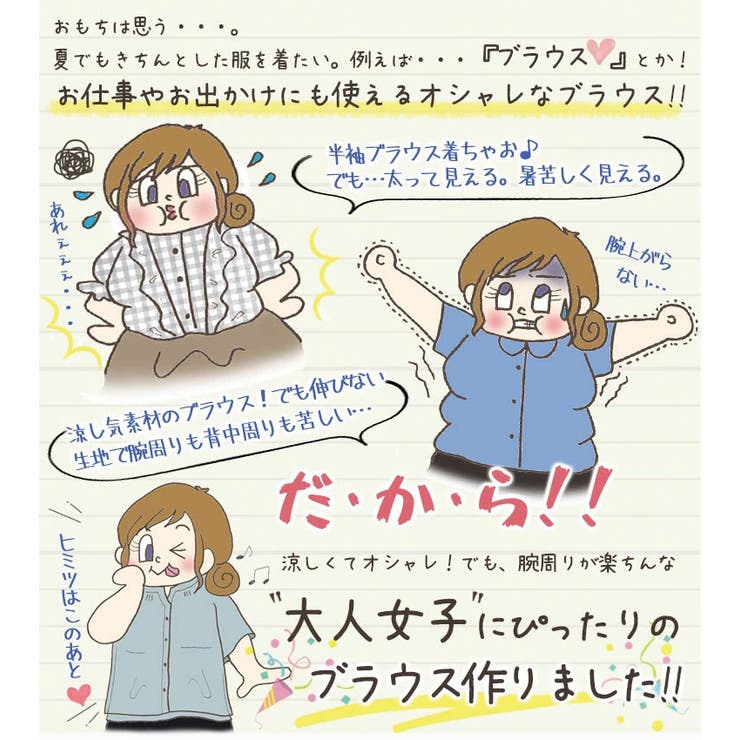 おもちは思う・・・。
夏でもきちんとした服を着たい。例えば・・・『ブラウス♥』とか！
お仕事やお出かけにも使えるオシャレなブラウス!!
半袖ブラウス着ちゃお♪
でも…太って見える。暑苦しく見える。
あれぇぇぇ・・・
腕上がら
ない…
涼し気素材のブラウス！でも伸びない
生地で腕周りも背中周りも苦しい…
だ・か・ら!!
ヒミツはこのあと
涼しくてオシャレ！でも、腕周りが楽ちんな
"大人女子"にぴったりの
ブラウス作りました!!